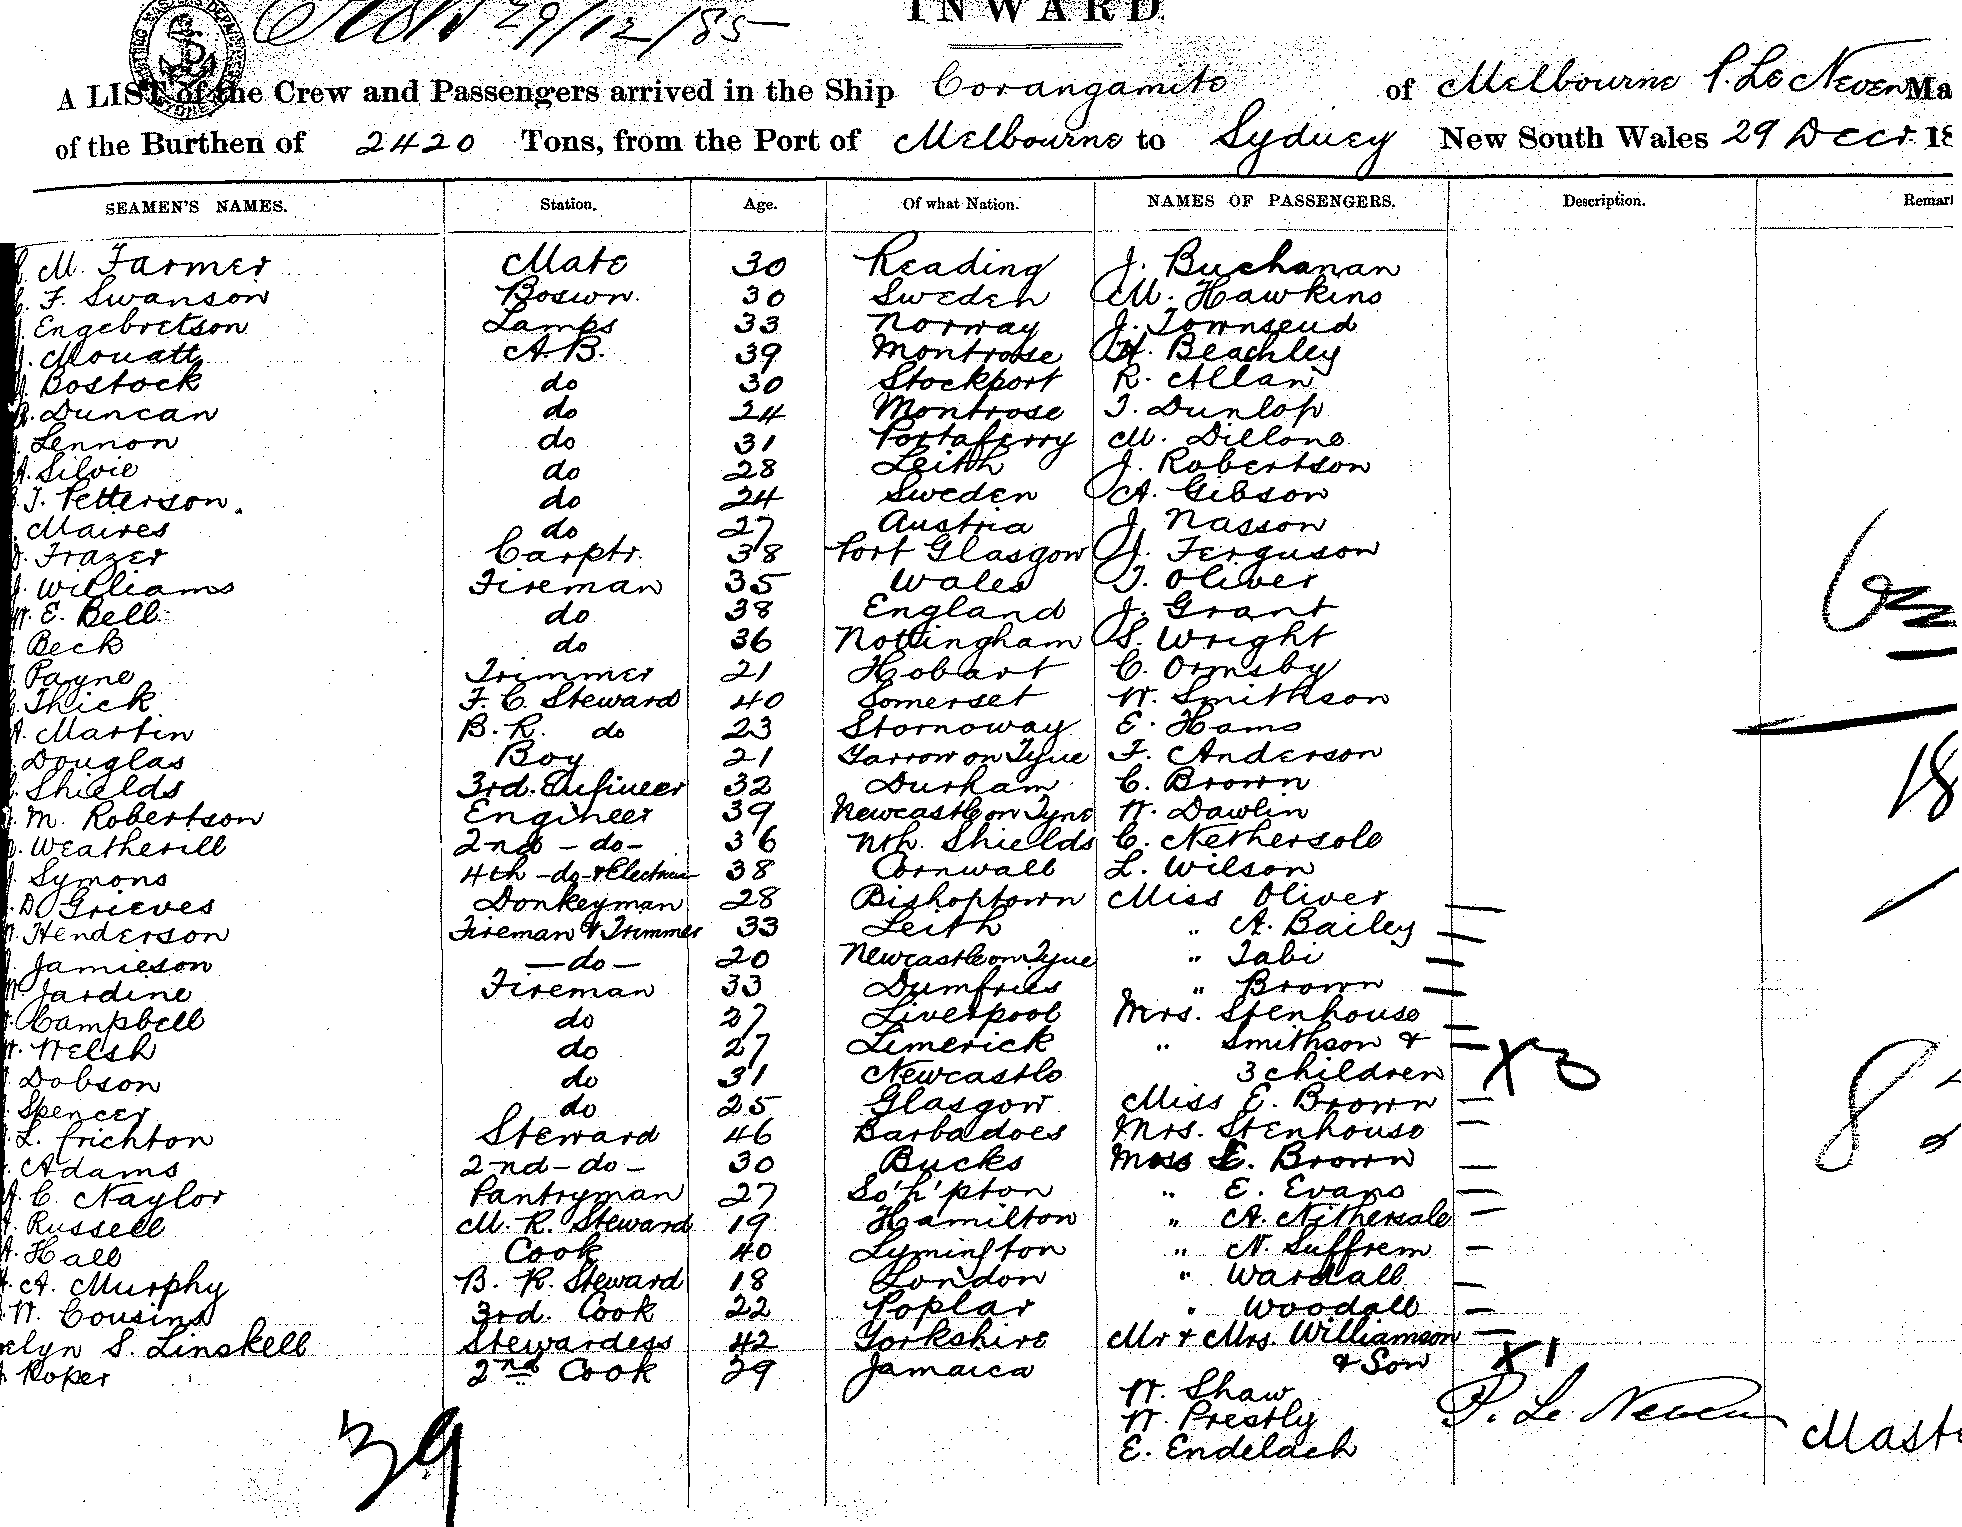 29/12/85
INWARD
A LIST of the Crew and Passengers arrived in the Ship Corangamite of Melbourne P. Le Neven Ma
of the Burthen of 2420 Tons, from the Port of Melbourne to Sydney New South Wales 29 Decr. 18
SEAMEN'S NAMES. Station. Age. Of what Nation. NAMES OF PASSENGERS. Description. Remar
M. Farmer Mate 30 Reading J. Buchanan
F. Swanson Boswn. 30 Sweden M. Hawkins
Engebretson Lamps 33 Norway J. Townsend
Mouatt A.B. 39 Montrose H. Beachley
Bostock do 30 Stockport R. Allan
Duncan do 24 Montrose T. Dunlop
Lennon do 31 Portaferry M. Dillone
A. Silvie do 28 Leith J. Robertson
J. Petterson. do 24 Sweden A. Gibson
Maires do 27 Austria J. Nasson
Frazer Carptr. 38 Port Glasgow J. Ferguson
J. Williams Fireman 35 Wales T. Oliver
W. E. Bell do 38 England J. Grant
Beck do 36 Nottingham S. Wright
Payne Trimmer 21 Hobart C. Ormsby
Thick F. C. Steward 40 Somerset W. Smithson
A. Martin B. R. do 23 Stornoway E. Hams
Douglas Boy 21 Yarrow on Tyne F. Anderson
Shields 3rd. Engineer 32 Durham C. Brown
M. Robertson Engineer 39 Newcastle on Tyne W. Dawlin
Weatherill 2nd - do - 36 Nth. Shields C. Nethersole
Symons 4th - do - & Electrician 38 Cornwall L. Wilson
D Grieves Donkeyman 28 Bishoptown Miss Oliver
Henderson Fireman & Trimmer 33 Leith " A. Bailey
Jamieson - do - 20 Newcastle on Tyne " Tabi
Jardine Fireman 33 Dumfries " Brown
Campbell do 27 Liverpool Mrs. Stenhouse
Welsh do 27 Limerick " Smithson &
Dobson do 31 Newcastle 3 children X3
Spencer do 25 Glasgow Miss E. Brown
L. Crichton Steward 46 Barbadoes Mrs. Stenhouse
Adams 2nd - do - 30 Bucks Miss E. Brown
C. Naylor Pantryman 27 So'h'pton " E. Evans
Russell M. R. Steward 19 Hamilton " A. Nithersale
Hall Cook 40 Lymington " N. Suffrem
A. Murphy B. R. Steward 18 London " Wardall
W. Cousins 3rd. Cook 22 Poplar " Woodall
elyn S. Linskell Stewardess 42 Yorkshire Mr & Mrs. Williamson
Roper 2nd Cook 29 Jamaica & Son X1
W. Shaw
W. Prestly P. Le Neven
E. Endelach Maste
39
18
8